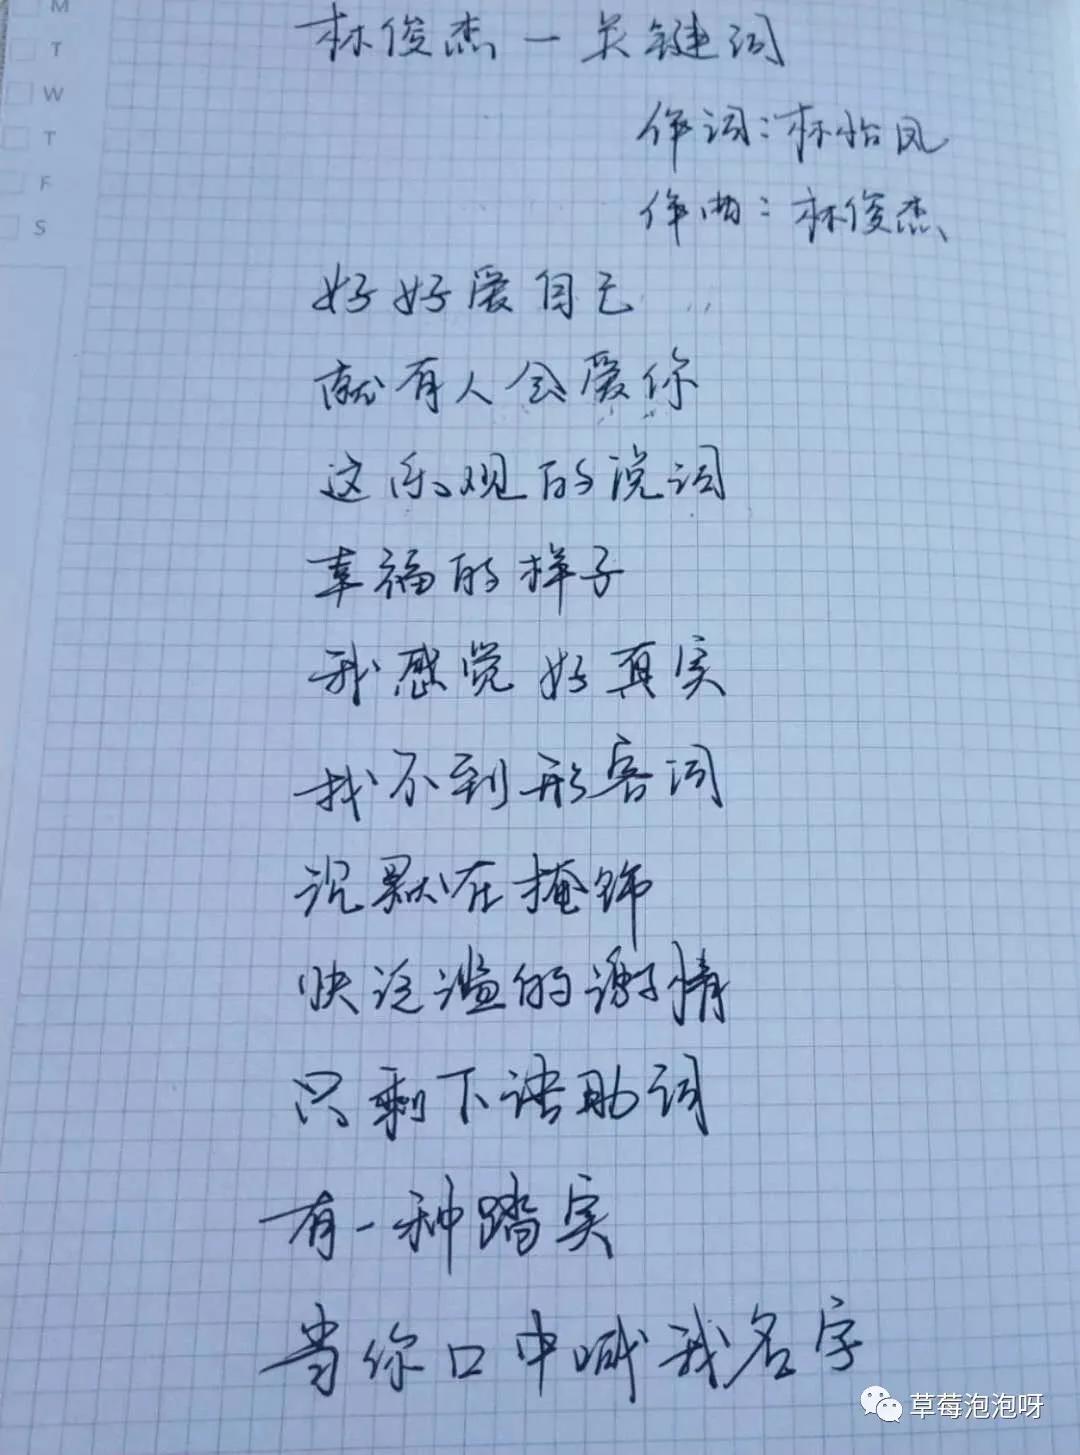 M
T
W
T
F
S
林俊杰一关键词
作词：林怡凤
作曲：林俊杰
好好爱自己
就有人会爱你
这乐观的说词
幸福的样子
我感觉好真实
找不到形容词
沉默在掩饰
快泛滥的激情
只剩下语助词
有一种踏实
当你口中喊我名字
草莓泡泡呀